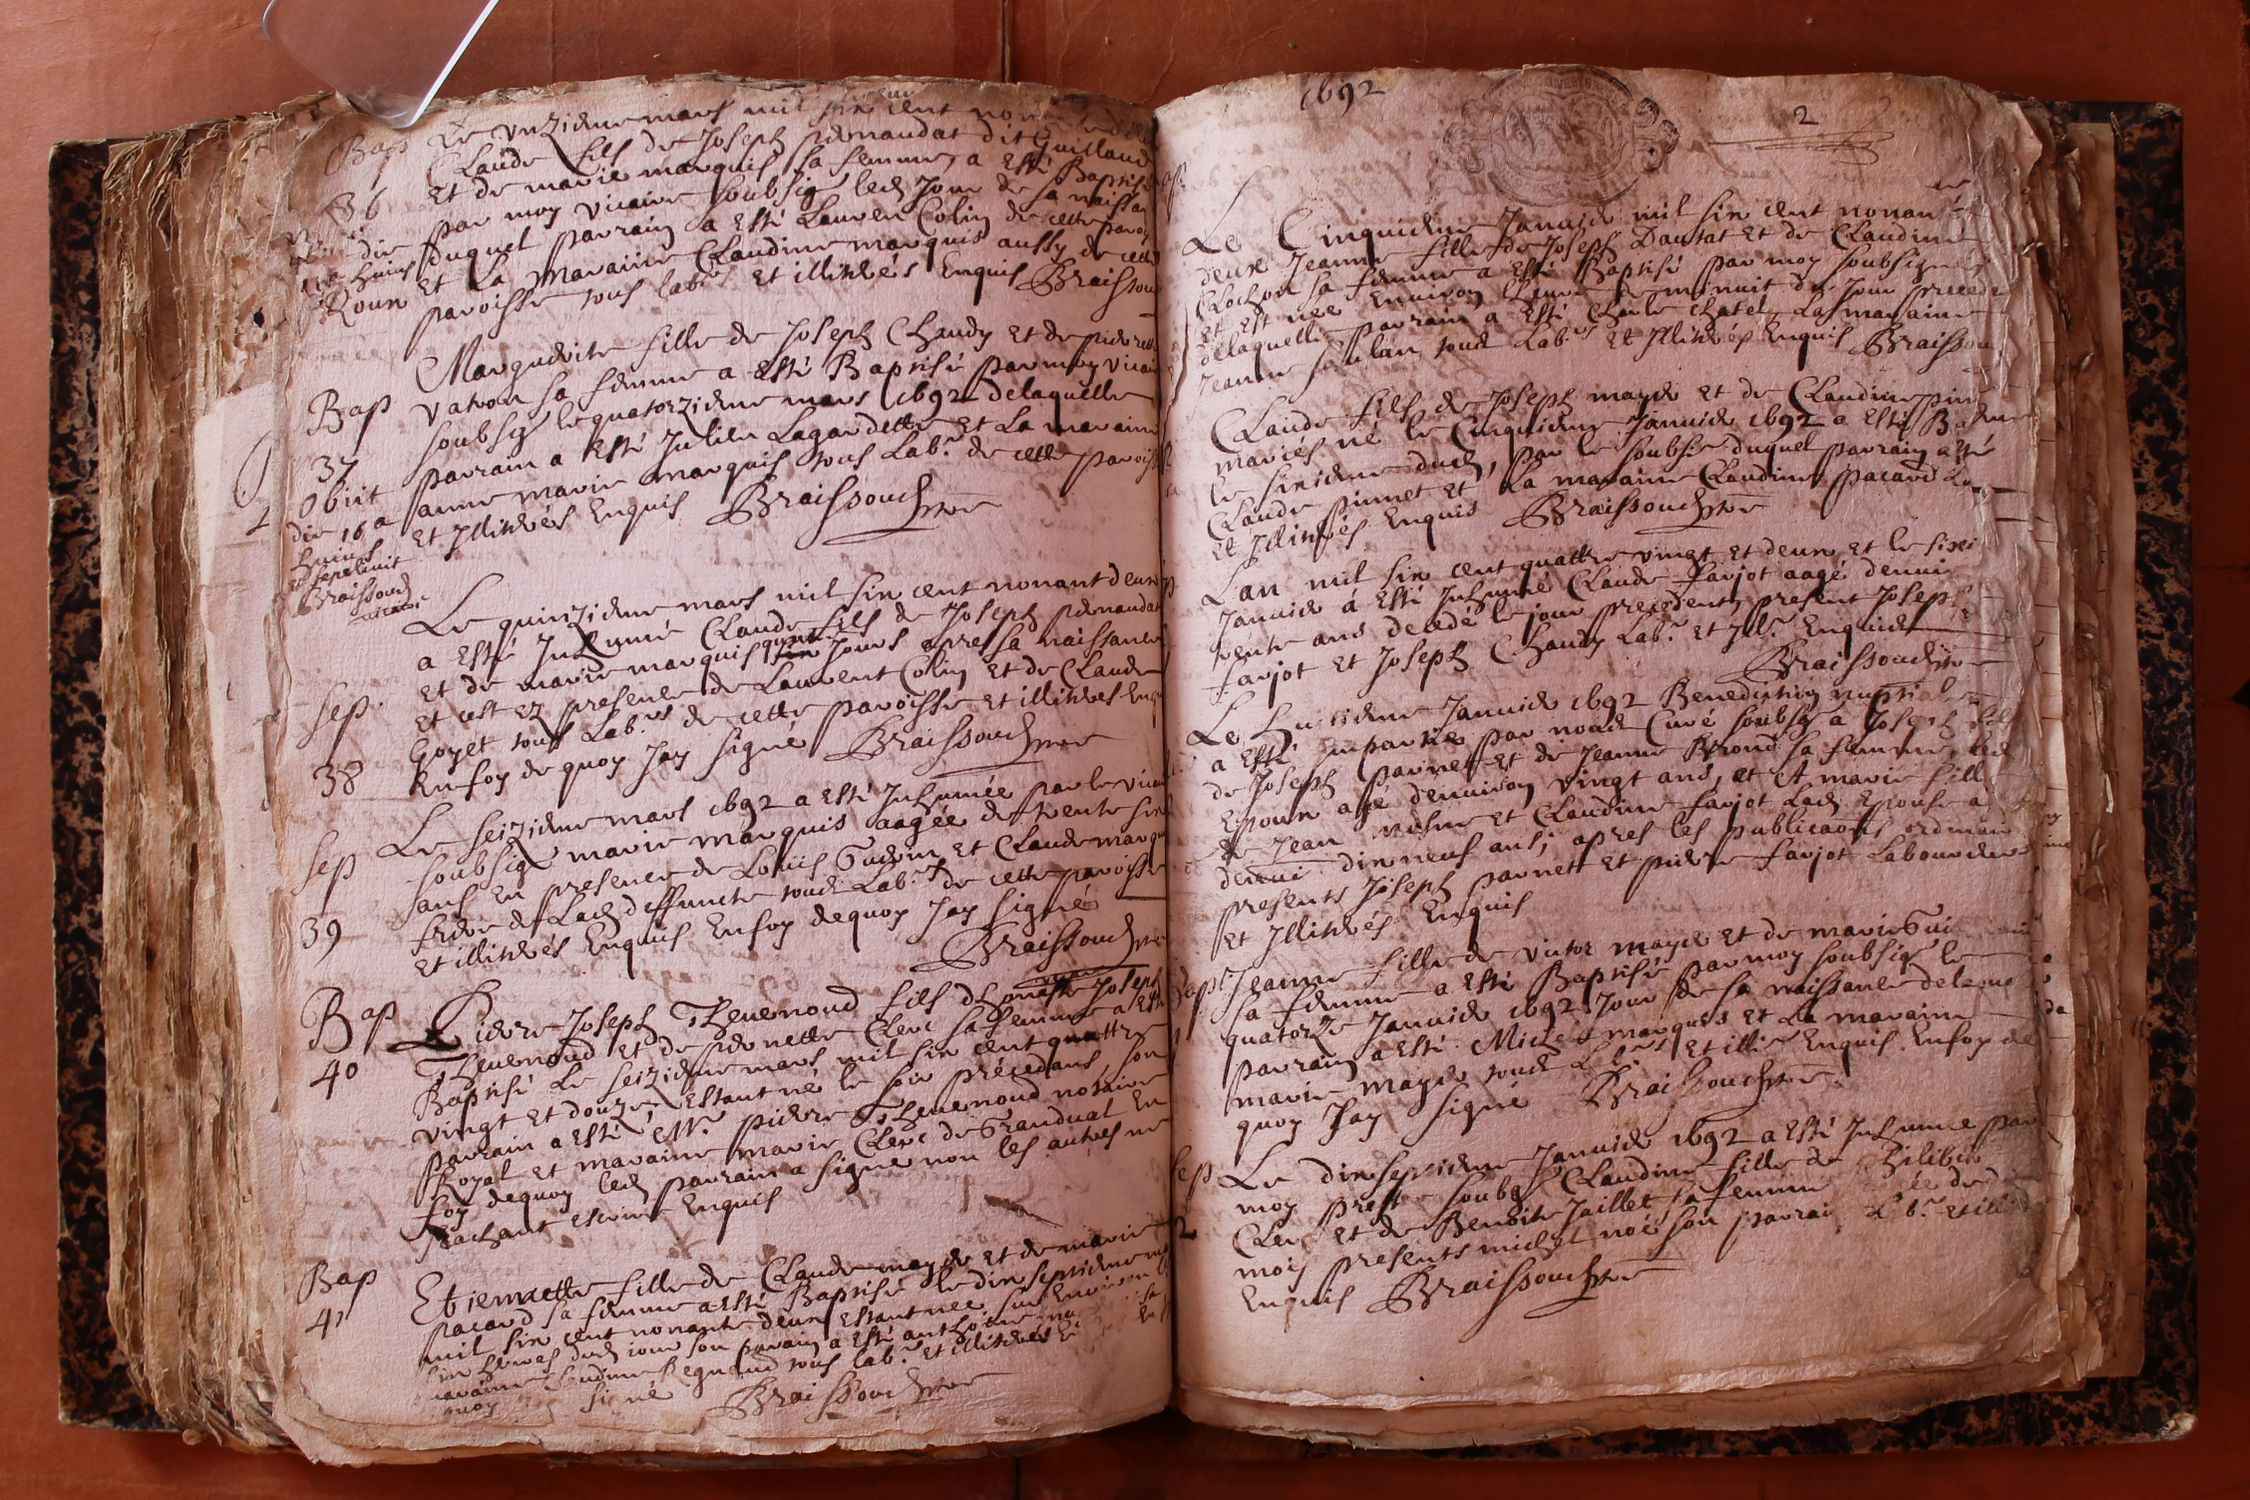 Bap Le unzieme mars mil six cent
Claude fils de Joseph permandat dit Guilland
36 et de marie marquis sa femme, a esté Baptisé
par moy vicaire soubsig led Jour de sa naissan
die duquel parrain a esté Lauren Colin de cette paroi
huius et La maraine Claudine marquis aussy de cette
paroisse tous lab.rs et illitérés Enquis Braissoud
Marguerite fille de Joseph Chaudy et de pierrett
Bap vatron sa femme a esté Baptisé par moy vicai
soubsg le quatorzieme mars 1692 delaquelle
37 parrain a esté Julien Lagardette et La maraine
Obiit anne marie marquis tous Lab.r de cette paroiss
die 16a et Illitérés Enquis Braissoud ptre
huius
et sepelivit
Braissoud
vicaire
Le quinzieme mars mil six cent nonant deux
a esté Inhumé Claude fils de Joseph permandat
et de marie marquis Jours apres sa naissance
sep. et cest ez presence de Laurent Colin et de Claude
Goyet tous Lab.rs de cette paroisse et illitérés Enq
38 En foy de quoy Jay signé Braissoud ptre
Le seizieme mars 1692 a esté Inhumée par le vicai
sep soubsigé marie marquis aagée de trente six
ans En presence de Louis Guerin et Claude marqui
frere de Lad deffuncte tous Lab.rs de cette paroisse
39 et illitérés Enquis Enfoy dequoy Jay signé
Braissoud ptre
Bap Pierre Joseph Thevenoud fils d'honeste Joseph
40 Thevenoud et de pernette Clerc sa femme a esté
Baptisé Le seizieme mars mil six cent quattre
vingt et douze, Estant né le soir précedans, son
parrain a esté M.r pierre Thevenoud notaire
Royal et maraine marie Clerc de Granduat En
foy dequoy led parrain a signé non les autres ne
sachant escrire Enquis
Bap Etiennette fille de Claude mayer et de marie
41 pacard sa femme a esté Baptisé le dix septieme
mil six cent nonante deux Estant née sur Environ
six heures dud jour son parrain a esté anthoine
maraine Claudine tous lab.r et illitérés
quoy signé Braissoud ptre
1692
2
Le Cinquieme Janvier mil six cent nonan
deux Jeanne fille de Joseph Dautat et de Claudine
Clochon sa femme a esté Baptisé par moy soubsigné
et est née Environ lheure de minuit du Jour precede
delaquelle parrain a esté Charle Chatel, La maraine
Jeanne tous Lab.rs et Illitérés Enquis Braissou
Claude fils de Joseph mayer et de Claudine pin
mariés né le Cinquieme Janvier 1692 a esté Ba
le sixieme dud, par le soubsé duquel parrain a esté
Claude pinnet et La maraine Claudine pacard La
et Illitérés Enquis Braissoud ptre
Lan mil six cent quattre vingt et deux et le sixi
Janvier a esté Inhumé Claude farjot aagé denvir
trente ans decedé le jour precedent, present Joseph
farjot et Joseph Chaudy Lab.r et Ill.r Enquis
Braissoud ptre
Le huitieme Janvier 1692 Benediction nuptial
a esté impartie par nous Curé soubsg a Joseph fils
de Joseph parnet et de Jeanne Brond sa femme, led
Epoux agé denviron vingt ans, et A marie fill
de Jean et Claudine farjot Lad Epouse a
denvi dixneuf ans; apres les publicaons ordinair
presents Joseph parnet et pierre farjot Laboureurs
et Illitérés Enquis
Bap Jeanne fille de victor mayer et de marie Gui
sa femme a esté Baptisé par moy soubsigé le
quatorze Janvier 1692 Jour de sa naissance delaque
parrain a esté Michel marquis et La maraine
marie mayer tous Lab.rs et illi.r Enquis. Enfoy de
quoy Jay signé Braissoud ptre
sep Le dix septieme Janvier 1692 a esté Inhumé par
moy preste soubsg Claudine fille de philiber
Clerc et de Benoite Jaillet sa femme de di
2 mois presents michel noé son parrai Lb.r et illi
Enquis Braissoud ptre